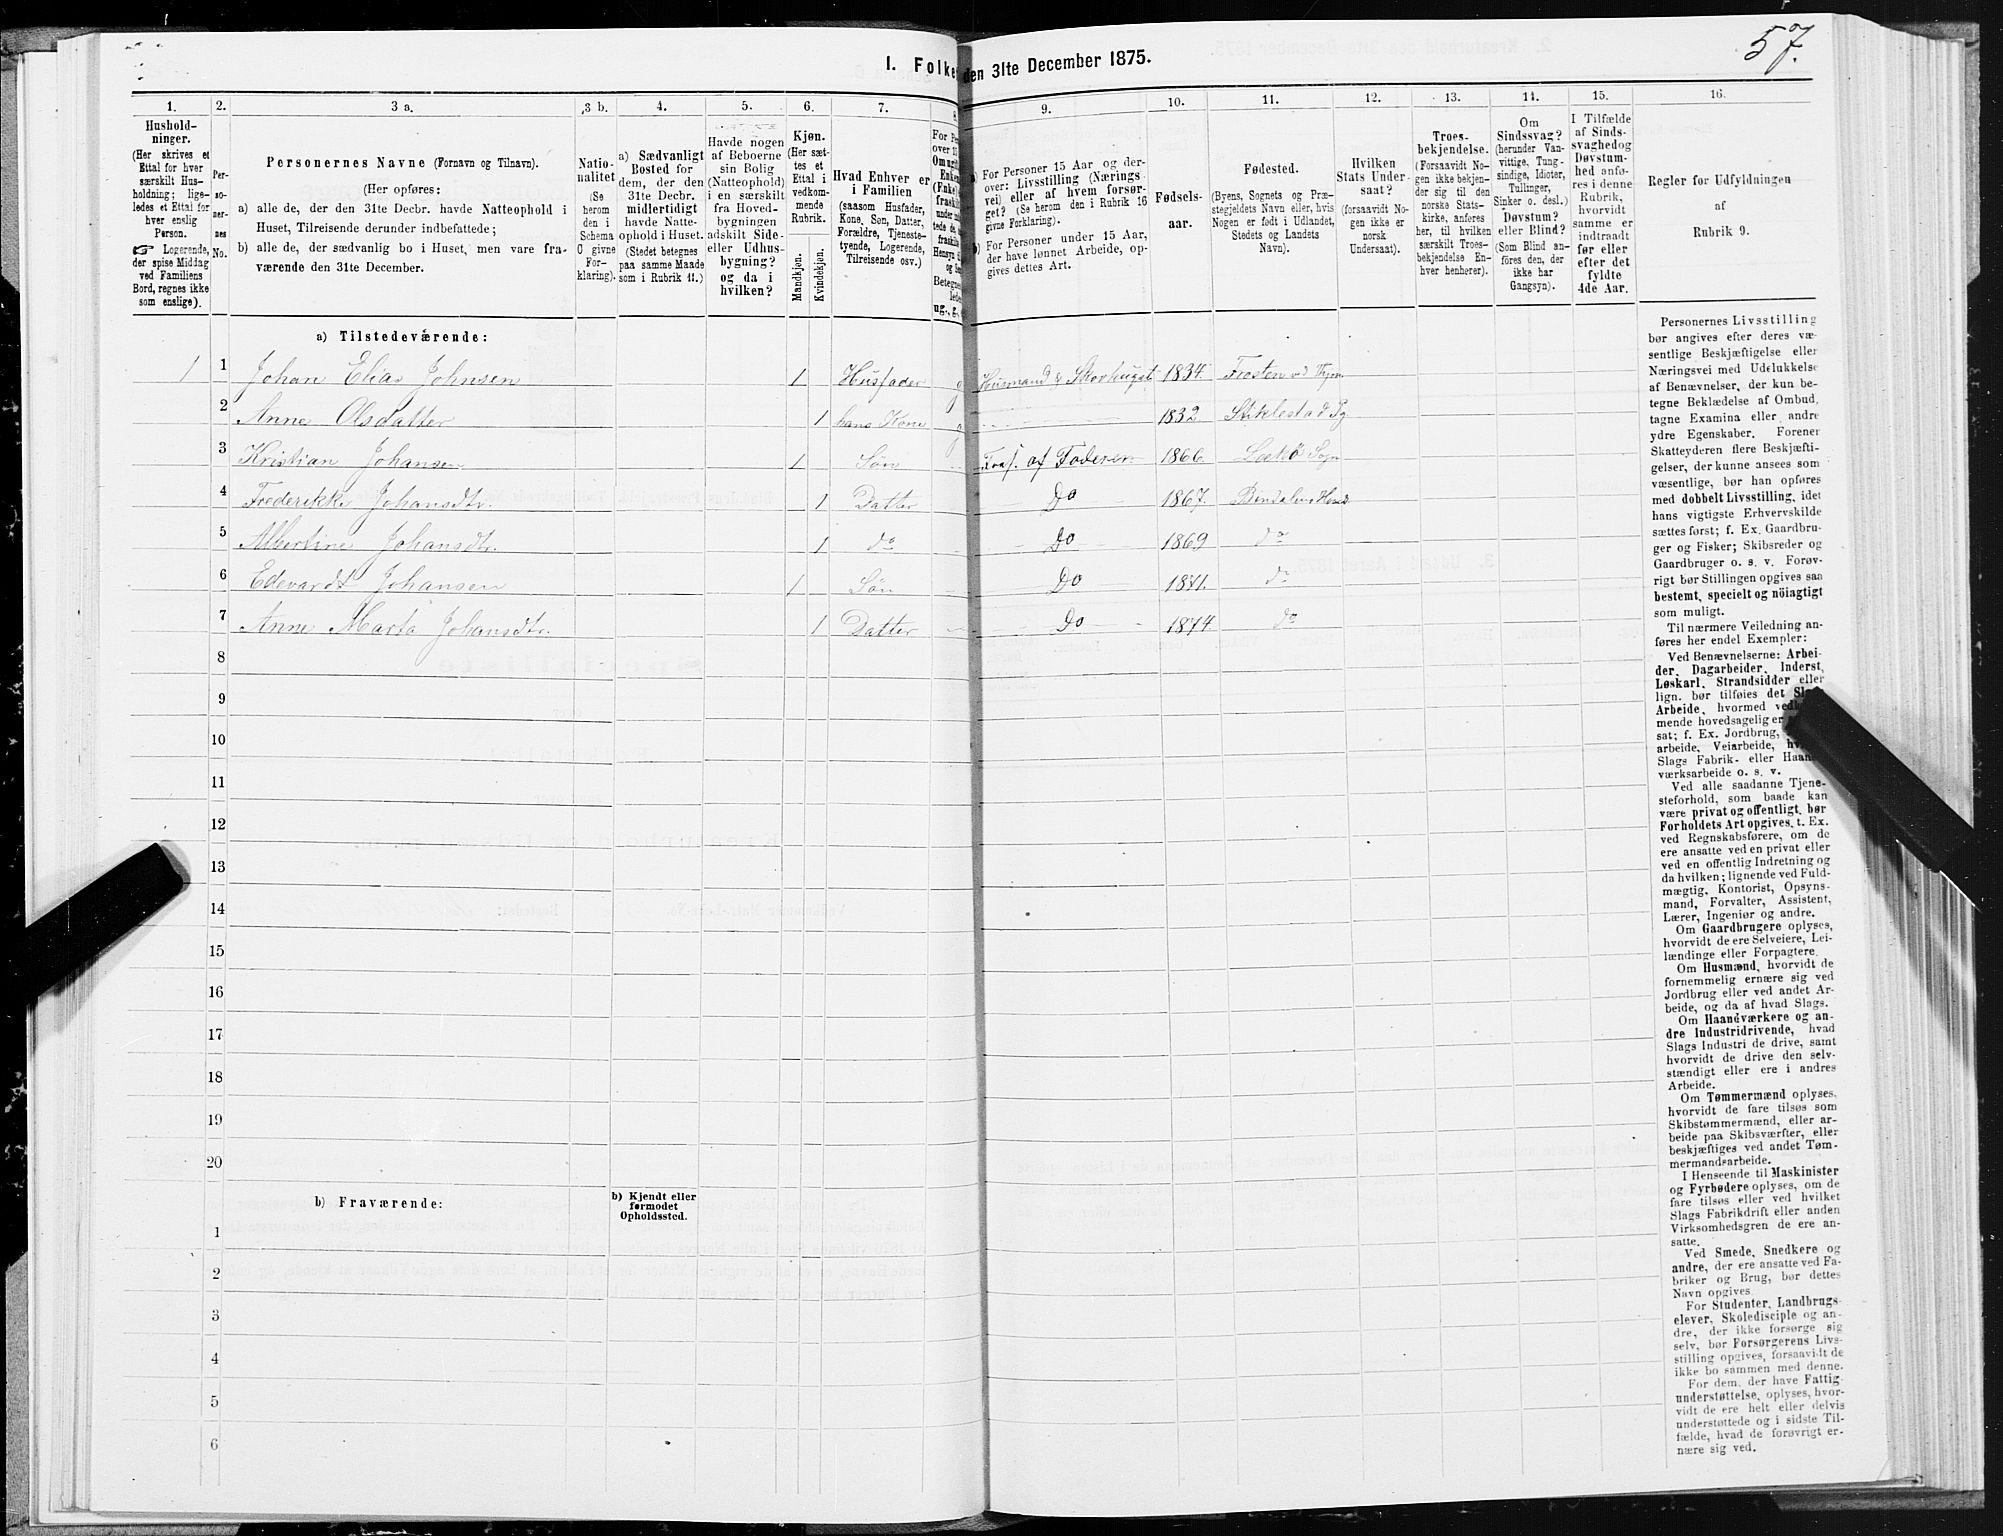 57.
I. Folke den 31te December 1875.
1. 2. 3 a. 3 b. 4. 5. 6. 7. 8. 9. 10. 11. 12. 13. 14. 15. 16.
Hushold-
ninger.
(Her skrives et
Ettal for hver
særskilt Hus-
holdning; lige-
ledes et Ettal for
hver enslig
Person.
☞ Logerende,
der spise Middag
ved Familiens
Bord, regnes ikke
som enslige).
Per-
so-
ner-
nes
No.
Personernes Navne (Fornavn og Tilnavn).
(Her opføres:
a) alle de, der den 31te Decbr. havde Natteophold i
Huset, Tilreisende derunder indbefattede;
b) alle de, der sædvanlig bo i Huset, men vare fra-
værende den 31te December.
Natio-
nalitet
(Se
herom
den i
Schema
O givne
For-
klaring).
a) Sædvanligt
Bosted for
dem, der den
31te Decbr.
midlertidigt
havde Natte-
ophold i Huset.
(Stedet betegnes
paa samme Maade
som i Rubrik 11.)
Havde nogen
af Beboerne
sin Bolig
(Natteophold)
i en særskilt
fra Hoved-
bygningen
adskilt Side-
eller Udhus-
bygning?
og da i
hvilken?
Kjøn.
(Her sæt-
tes et
Ettal i
vedkom-
mende
Rubrik.
Mandkjøn.
Kvindekjøn.
Hvad Enhver er
i Familien
(saasom Husfader,
Kone, Søn, Datter,
Forældre, Tjeneste-
tyende, Logerende,
Tilreisende osv.)
a) For Personer 15 Aar og der-
over: Livsstilling (Nærings-
vei) eller af hvem forsør-
get? (Se herom den i Rubrik 16
givne Forklaring).
b) For Personer under 15 Aar,
der have lønnet Arbeide, op-
gives dettes Art.
Fødsels-
aar.
Fødested.
(Byens, Sognets og Præ-
stegjeldets Navn eller, hvis
Nogen er født i Udlandet,
Stedets og Landets
Navn).
Hvilken
Stats Under-
saat?
(forsaavidt No-
gen ikke er
norsk
Undersaat).
Troes-
bekjendelse.
(Forsaavidt No-
gen ikke bekjen-
der sig til den
norske Stats-
kirke, anføres
her, til hvilken
særskilt Troes-
bekjendelse En-
hver henhører).
Om
Sindssvag?
(herunder Van-
vittige, Tung-
sindige, Idioter,
Tullinger,
Sinker o. desl.)
Døvstum?
eller Blind?
(Som Blind an-
føres den, der
ikke har
Gangsyn).
I Tilfælde
af Sinds-
svaghedog
Døvstum-
hed anfø-
res i denne
Rubrik,
hvorvidt
samme er
indtraadt
før eller
efter det
fyldte
4de Aar.
Regler for Udfyldningen
af
Rubrik 9.
a) Tilstedeværende:
1 1 Johan Elias Johnsen 1 Husfader g Husmand & 1834. Frosten
2 Anne Olsdatter 1 hans Kone g 1832 Stiklestad Pg
3 Kristian Johansen 1 Søn Fors. af Faderen 1866. Sogn
4 Frederikke Johansdtr. 1 Datter Do 1867. Bindalen
5 Albertine Johansdtr. 1 do Do 1869 do
6 Edevardt Johansen 1 Søn Do 1871. do
7 Anne Marta Johansdtr. 1 Datter Do 1874 do
8
9
10
11
12
13
14
15
16
17
18
19
20
b) Fraværende:
b) Kjendt eller
formodet
Opholdssted.
1
2
3
4
5
6
Personernes Livsstilling
bør angives efter deres væ-
sentlige Beskjæftigelse eller
Næringsvei med Udelukkelse
af Benævnelser, der kun be-
tegne Beklædelse af Ombud,
tagne Examina eller andre
ydre Egenskaber. Forener
Skatteyderen flere Beskjæfti-
gelser, der kunne ansees som
væsentlige, bør han opføres
med dobbelt Livsstilling, idet
hans vigtigste Erhvervskilde
sættes først; f. Ex. Gaardbru-
ger og Fisker; Skibsreder og
Gaardbruger o. s. v. Forøv-
rigt bør Stillingen opgives saa
bestemt, specielt og nöiagtigt
som muligt.
Til nærmere Veiledning an-
føres her endel Exempler:
Ved Benævnelserne: Arbei-
der, Dagarbeider, Inderst,
Løskarl, Strandsidder eller
lign. bør tilføies det Slags
Arbeide, hvormed vedkom-
mende hovedsagelig er
sat; f. Ex. Jordbrug,
arbeide, Veiarbeide,
Slags Fabrik- eller Haand-
værksarbeide o. s. v.
Ved alle saadanne Tjene-
steforhold, som baade kan
være privat og offentligt, bør
Forholdets Art opgives, t. Ex.
ved Regnskabsførere, om de
ere ansatte ved en privat eller
ved en offentlig Indretning og
da hvilken; lignende ved Fuld-
mægtig, Kontorist, Opsyns-
mand, Forvalter, Assistent,
Lærer, Ingeniør og andre.
Om Gaardbrugere oplyses,
hvorvidt de ere Selveiere, Lei-
lændinge eller Forpagtere.
Om Husmænd, hvorvidt de
fornemmelig ernære sig ved
Jordbrug eller ved andet Ar-
beide, og da af hvad Slags.
Om Haandværkere og an-
dre Industridrivende, hvad
Slags Industri de drive, samt
hvorvidt de drive den selv-
stændigt eller ere i andres
Arbeide.
Om Tømmermænd oplyses,
hvorvidt de fare tilsøs som
Skibstømmermænd, eller ar-
beide paa Skibsværfter, eller
beskjæftiges ved andet Tøm-
mermandsarbeide.
I Henseende til Maskinister
og Fyrbødere oplyses, om de
fare tilsøs eller ved hvilket
Slags Fabrikdrift eller anden
Virksomhedsgren de ere an-
satte.
Ved Smede, Snedkere og
andre, der ere ansatte ved Fa-
briker og Brug, bør dettes
Navn opgives.
For Studenter, Landbrugs-
elever, Skoledisciple og an-
dre, der ikke forsørge sig
selv, bør Forsørgerens Livs-
stilling opgives, forsaavidt de
ikke bo sammen med denne.
For dem, der have Fattig-
understøttelse, oplyses, hvor-
vidt de ere helt eller delvis
understøttede og i sidste Til-
fælde, hvad de forøvrigt er-
nære sig ved.